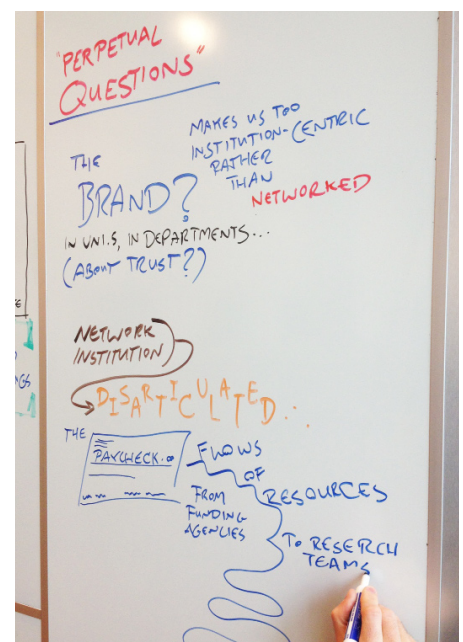 "PERPETUAL
QUESTIONS"
MAKES US TOO
INSTITUTION-CENTRIC
RATHER
THAN
NETWORKED
THE
BRAND?
IN UNI.S, IN DEPARTMENTS...
(ABOUT TRUST?)
NETWORK
INSTITUTION
DISARTICULATED...
THE
PAYCHECK.
FLOWS
OF
RESOURCES
FROM
FUNDING
AGENCIES
TO RESERCH
TEAMS
GS